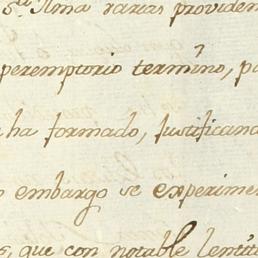 S.ª Ilma varias providen
peremptorio termino, pa
ha formado, justifican
embargo se experime
que con notable lentit